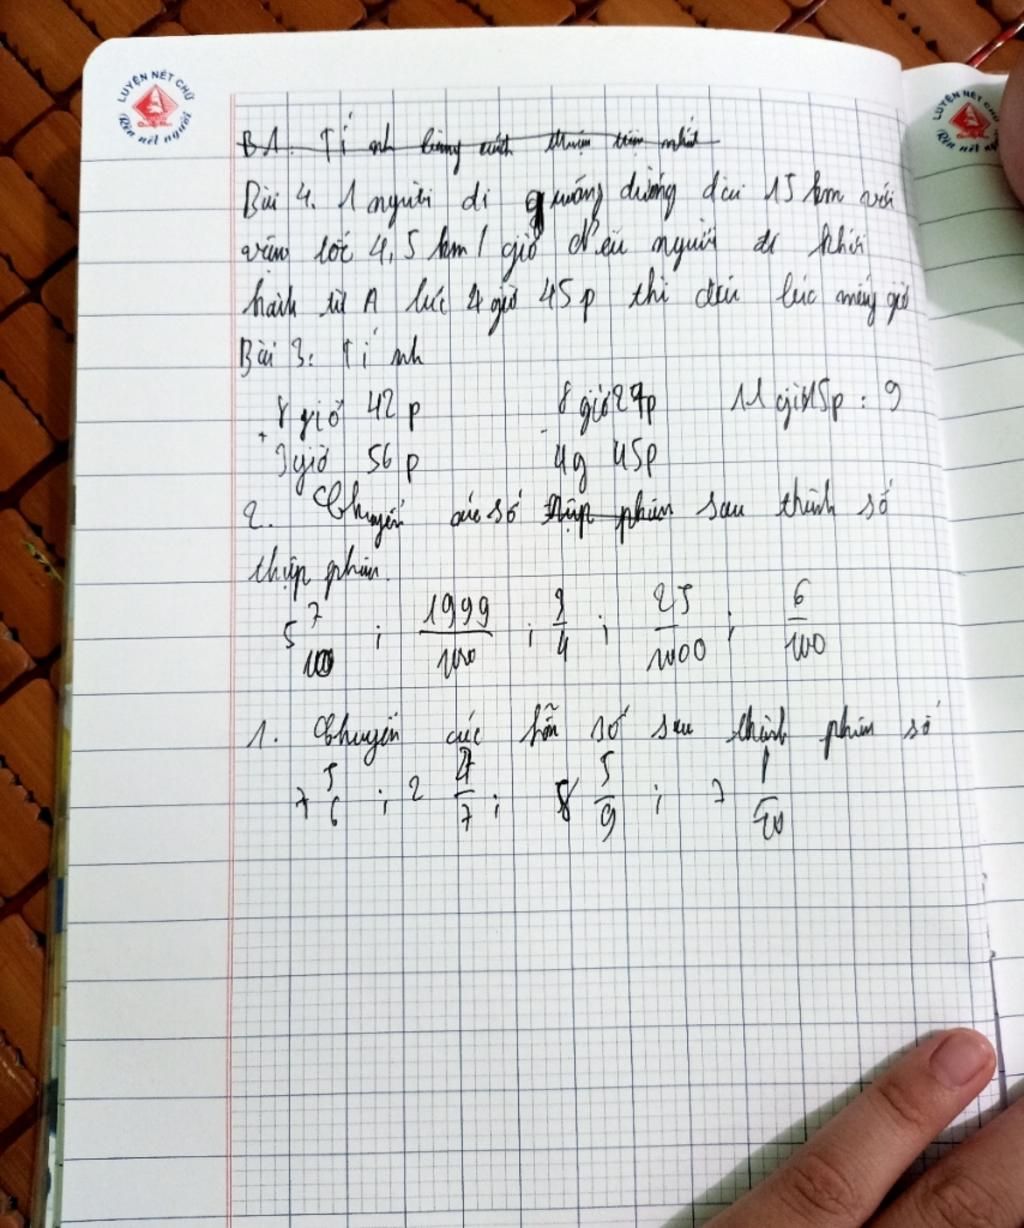 LUYỆN NÉT CHỮ
Rèn nét người
LUYỆN NÉT CHỮ
Rèn nét người
B1. Tính bằng cách thuận tiện nhất
Bài 4. 1 người đi quãng đường dài 15 km với
vận tốc 4,5 km/giờ Nếu người đi khởi
hành từ A lúc 4 giờ 45p thì đến lúc mấy giờ
Bài 3: Tính
8 giờ 42 p 8 giờ 27p 11 giờ 15p : 9
+ 3 giờ 56 p - 4g 45p
2. Chuyển các số thập phân sau thành số
thập phân.
5 7/100 ; 1999/100 ; 3/4 ; 25/1000 ; 6/100
1. Chuyển các hỗn số sau thành phân số
7 5/6 ; 2 4/7 ; 8 5/9 ; 7 1/50